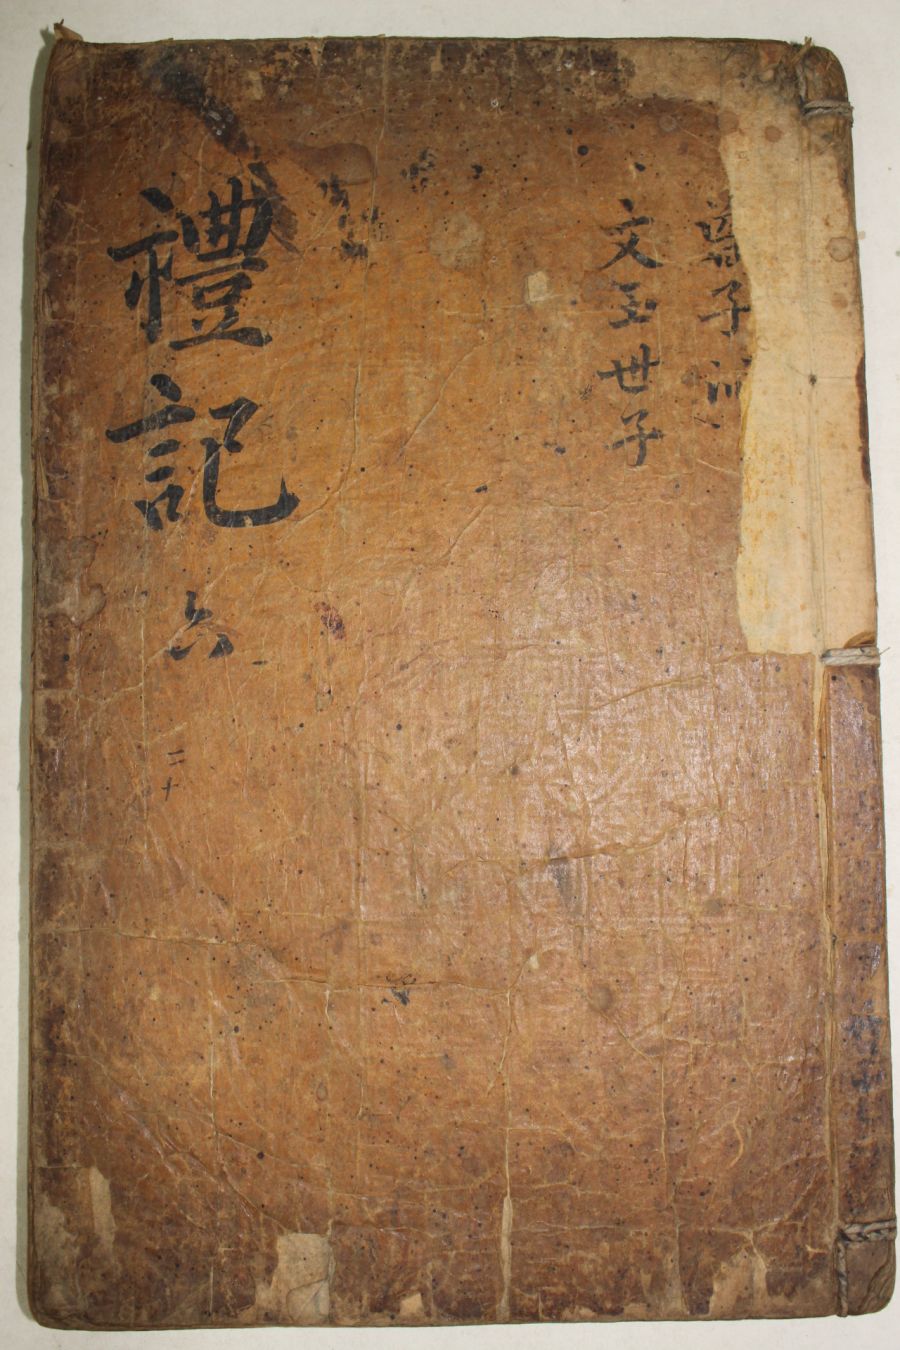 曾子問
文王世子
禮記 六
二十